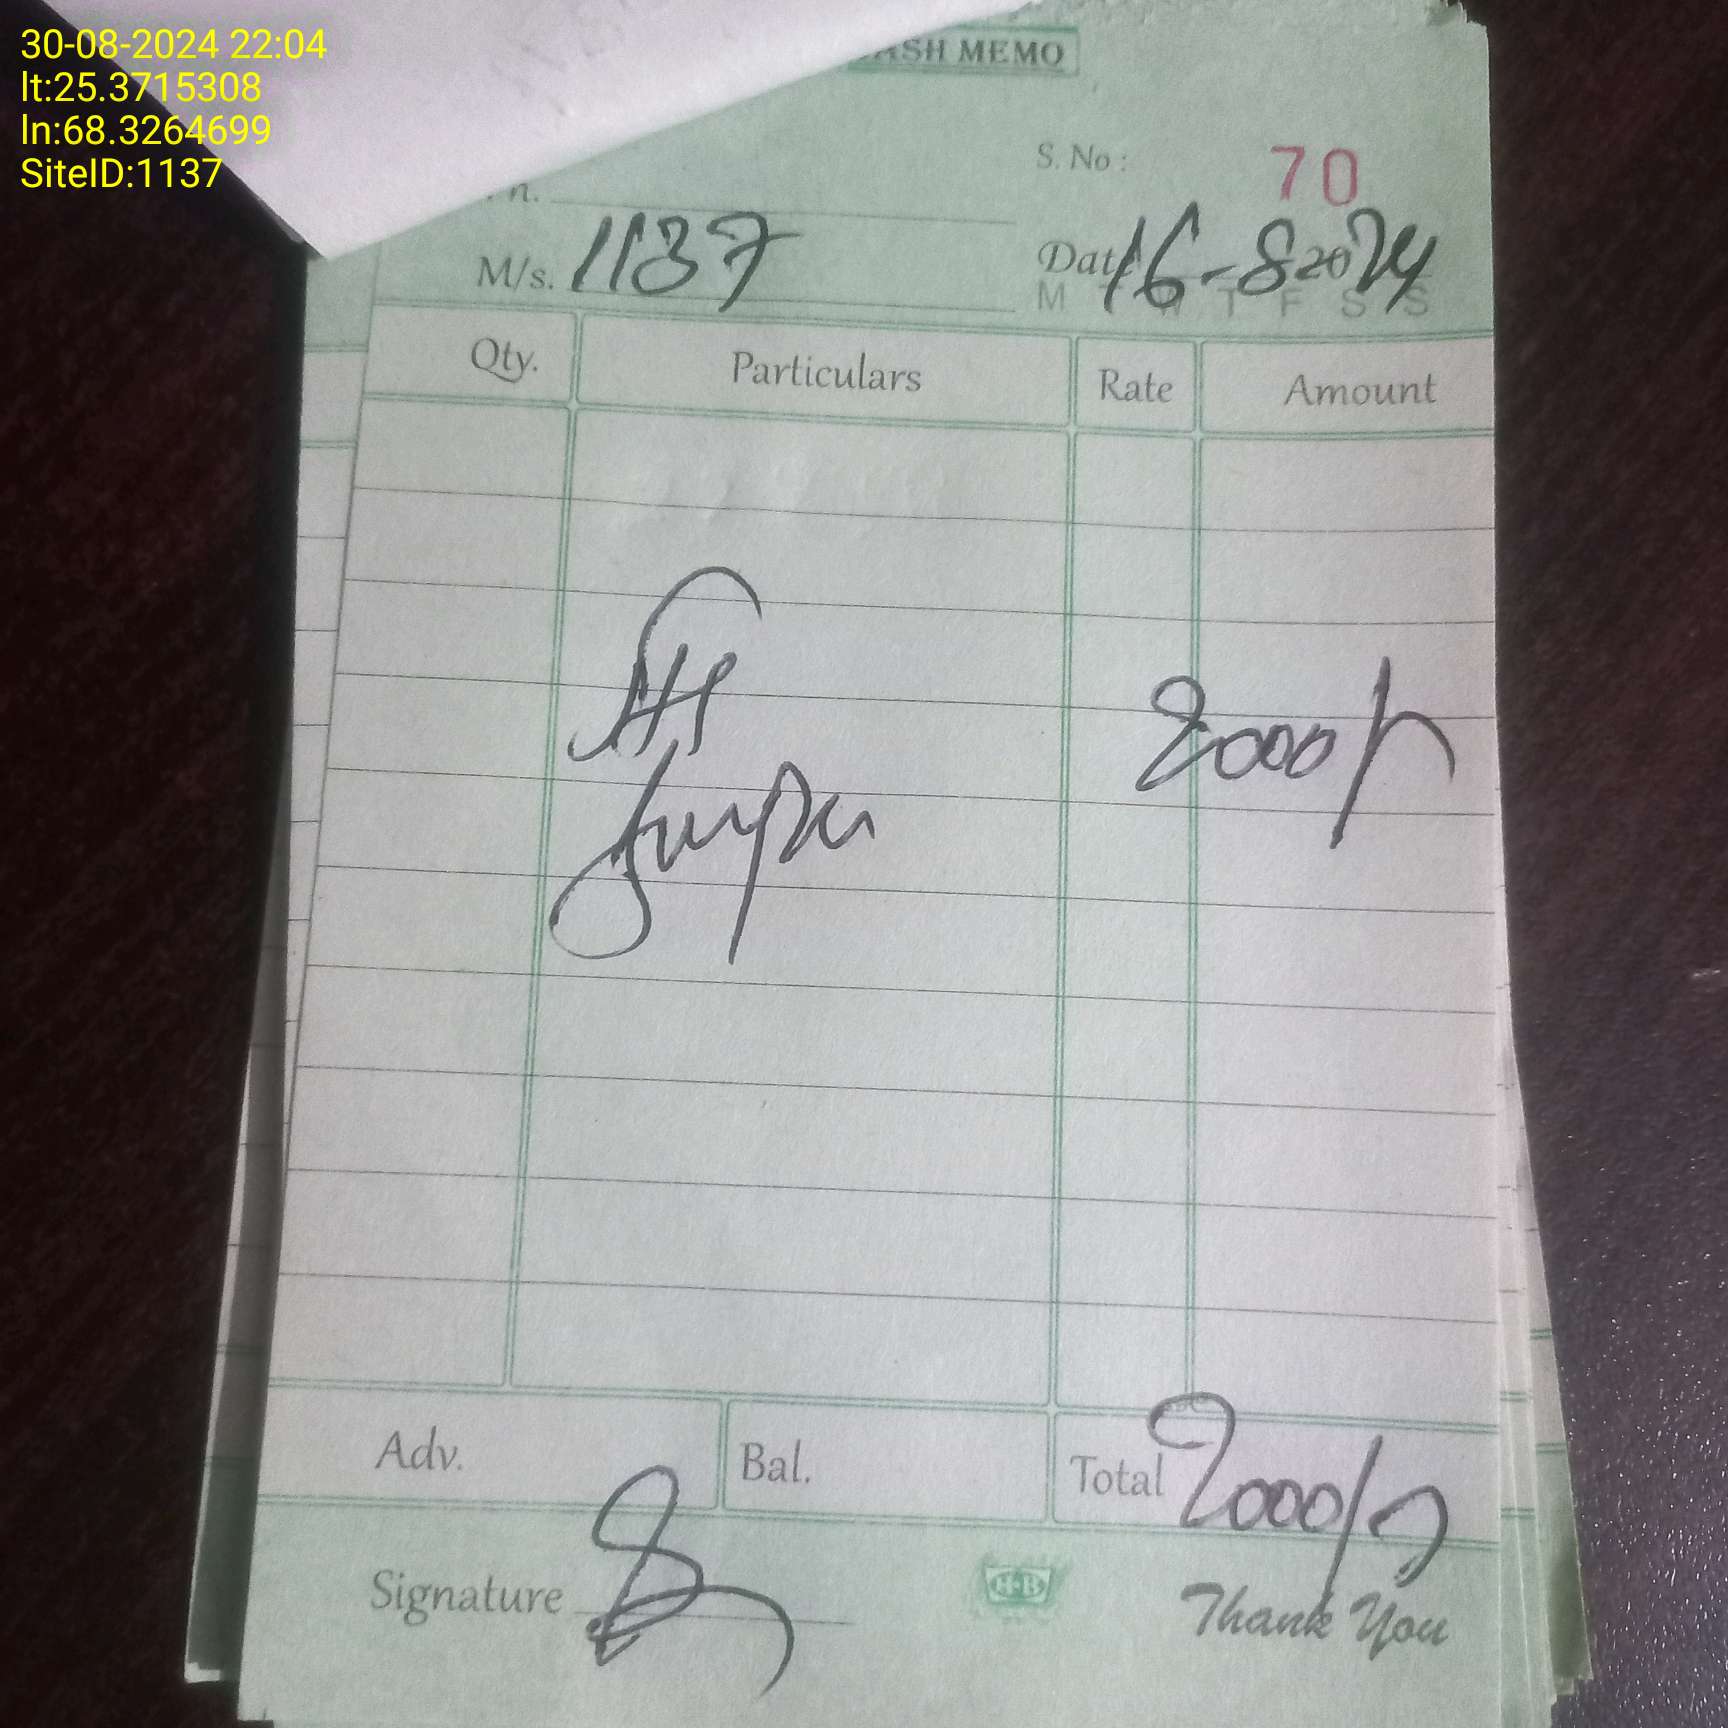 30-08-2024 22:04
lt:25.3715308
ln:68.3264699
SiteID:1137
ASH MEMO
S. No : 70
M/s. 1137
Date 16-8-2024
M T W T F S S
Qty. Particulars Rate Amount
2000/-
Adv. Bal. Total 2000/-
Signature
H-B
Thank You